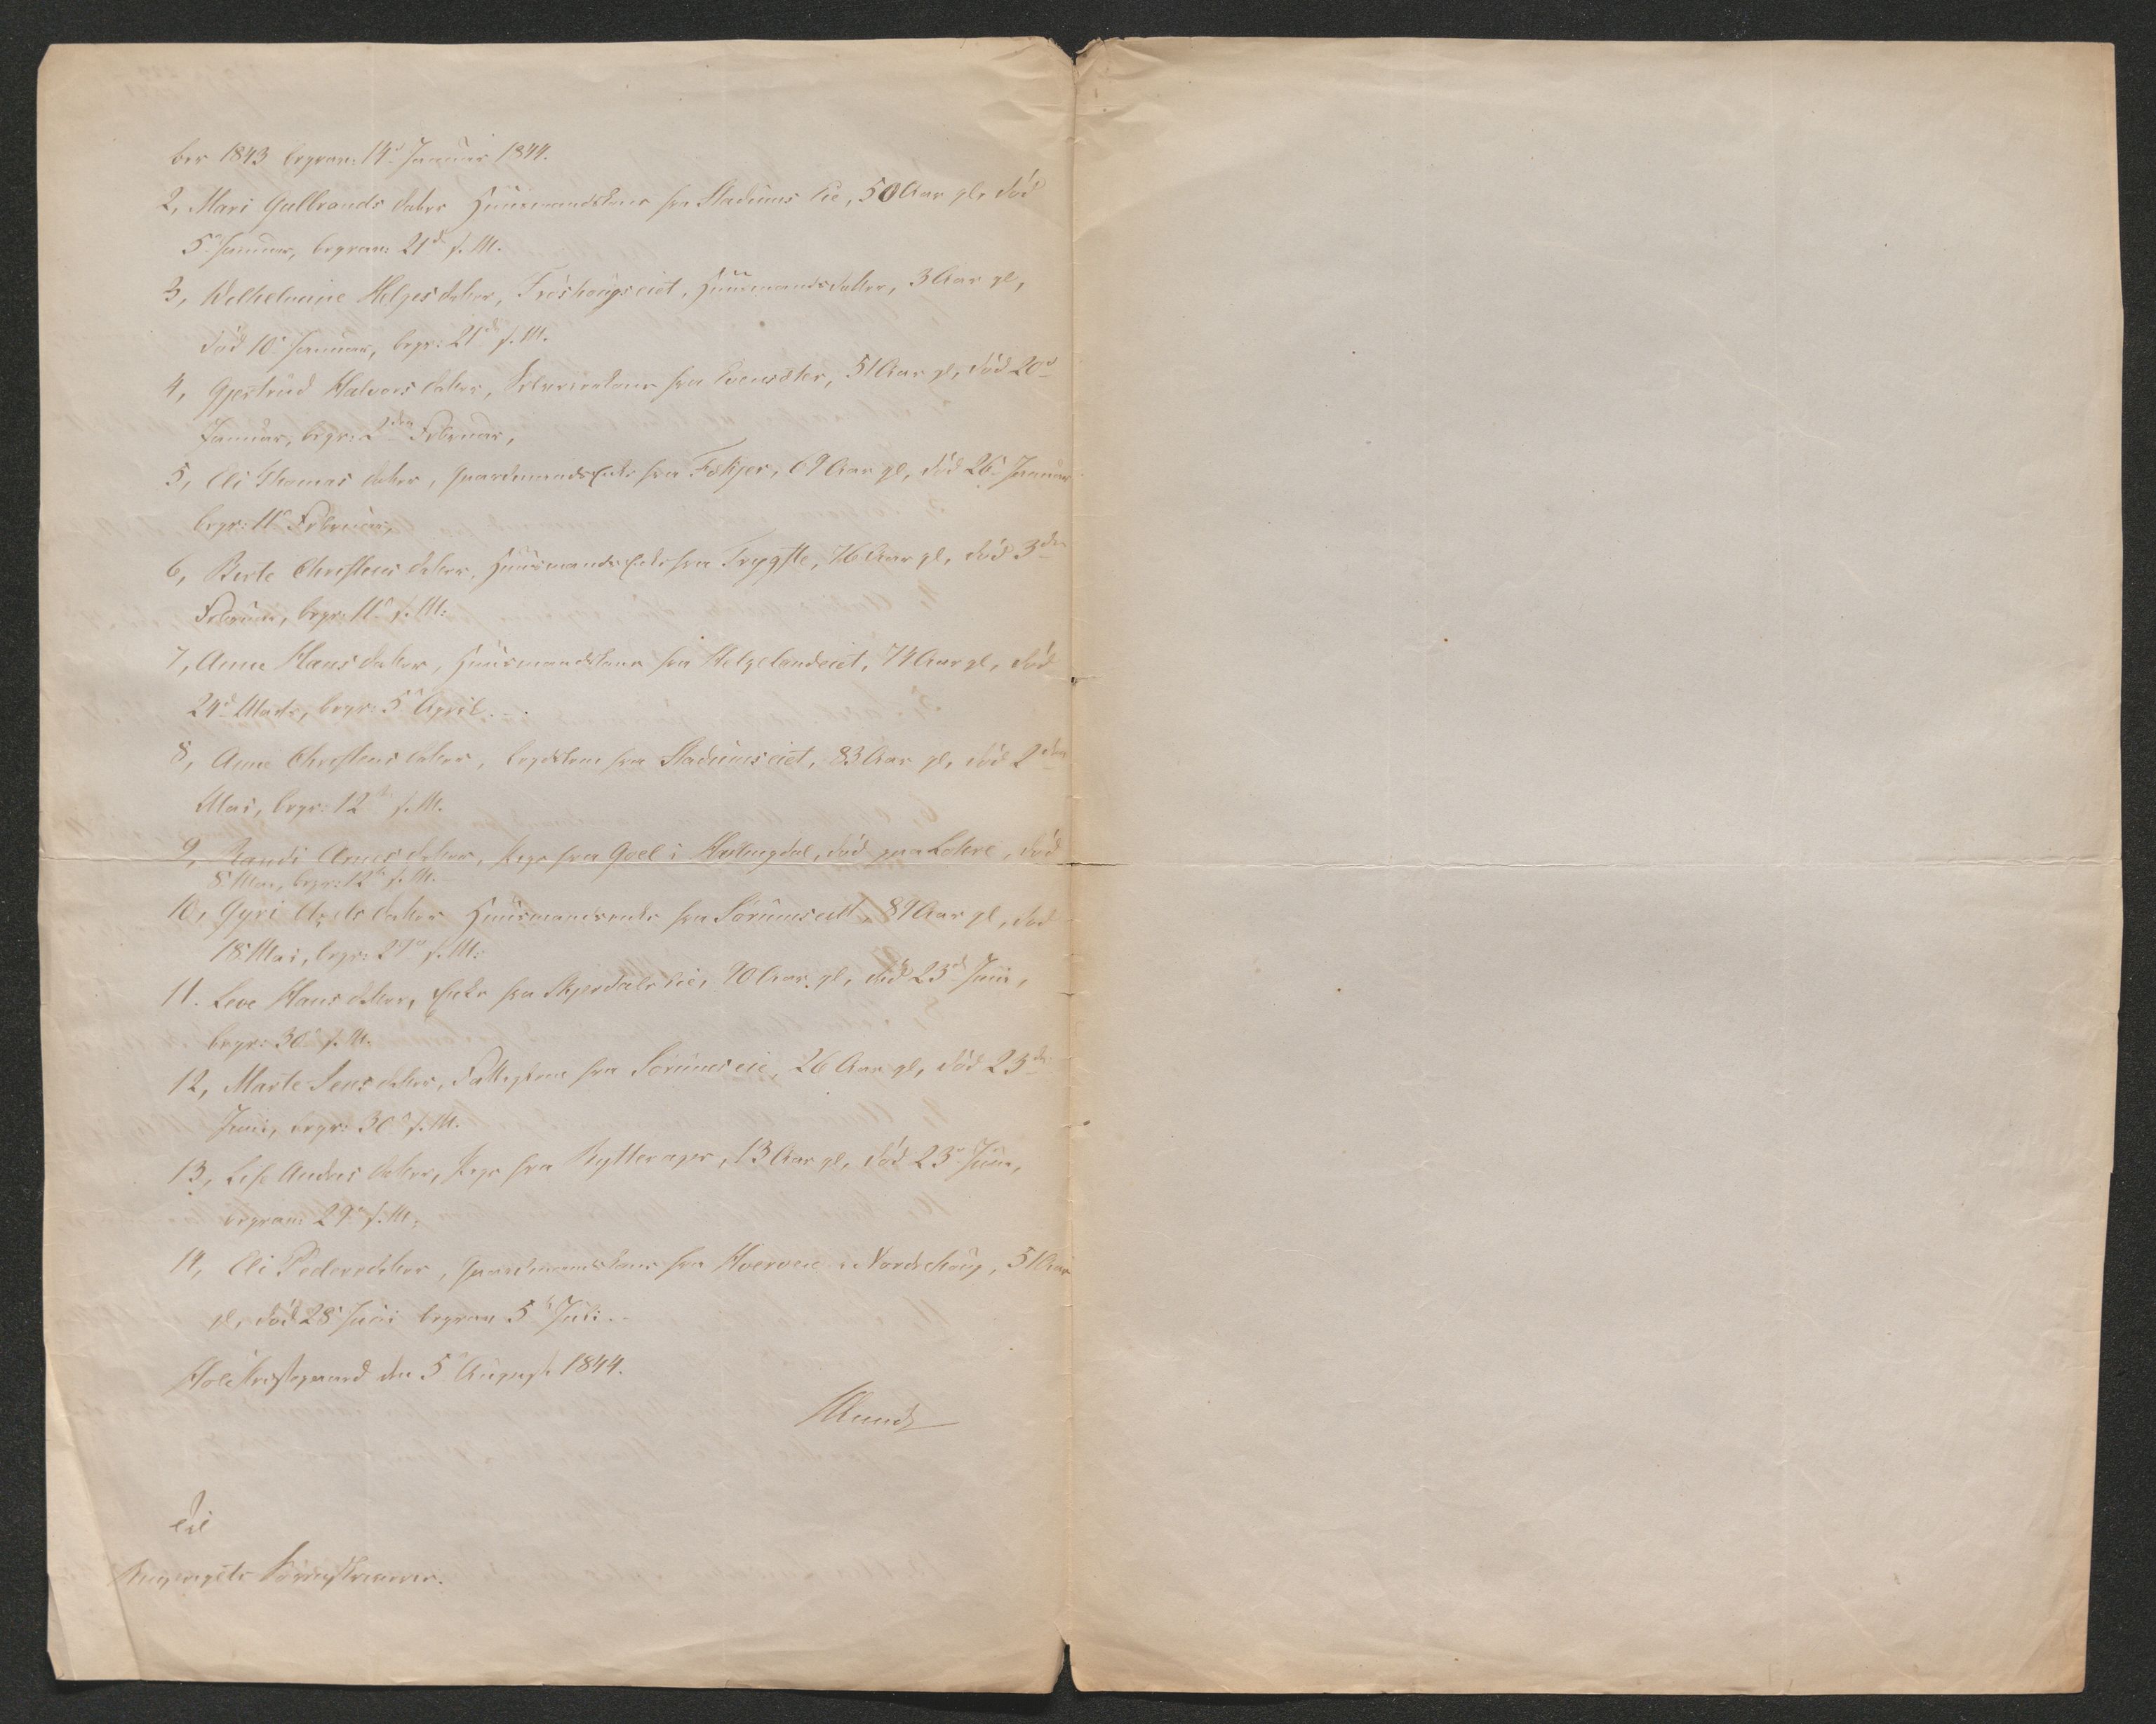 ber 1843 begrav: 14d Januar 1844.
2, Mari Gulbrands datter Huusmandskone fra Stadums Eie, 50 Aar gl, död
5t Januar, begrav: 21d s. M.
3, Wilhelmine Helgesdatter, Fröshougseiet, Huusmandsdatter, 3 Aar gl,
död 10d Januar, begr: 21d s. M.
4, Gjertrud Halvorsdatter, fra 51 Aar gl, död 20d
Januar, begr: 2den Februar,
5, Eli Thomasdatter, Gaardmandsenke fra Fekjer, 69 Aar gl, död 26 Januar
begr: 11t Februar,
6, Berte Christensdatter, Huusmandsenke fra Trøgsle, 76 Aar gl, död 3den
Februar, begr: 11t s. M:
7, Anne Hansdatter, Huusmandskone fra Helgelandseiet, 74 Aar gl, död
24d Marts, begr: 5t April.
8, Anne Christensdatter, fra Stadumseiet, 83 Aar gl, död 2den
Mai, begr: 12t s. M.
9, Randi Arnesdatter, Pige fra Goel i Hallingdal, död paa Lohre, död
8 Mai, begr: 12t s. M.
10, Gyri datter Huusmandsenke fra Sörumseiet, 89 Aar gl, död
18 Mai, begr: 29d s. M:
11. Live Hansdatter, Enke fra Skjerdals Eie, 90 Aar gl, död 23d Juni,
begr: 30t s. M.
12, Marte Jensdatter, fra Sörumseie, 26 Aar gl, död 23de
Juni, begr: 30t s. M.
13, Lise Andersdatter, Pige fra Rytterager, 13 Aar gl, död 23d Juni,
begrav: 29t s. M.
14, Eli Pedersdatter, Gaardmandskone fra Hverven i Norderhoug, 51 Aar
gl, död 28t Juni begrav 5t Juli.
Hole Præstegaard den 5t August 1844.
Munch
Til
Ringerigets Sorenskriver.